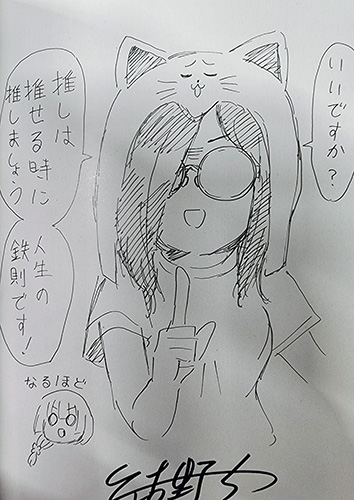 いいですか?
推しは
推せる時に
推しましょう
人生の
鉄則です!
なるほど